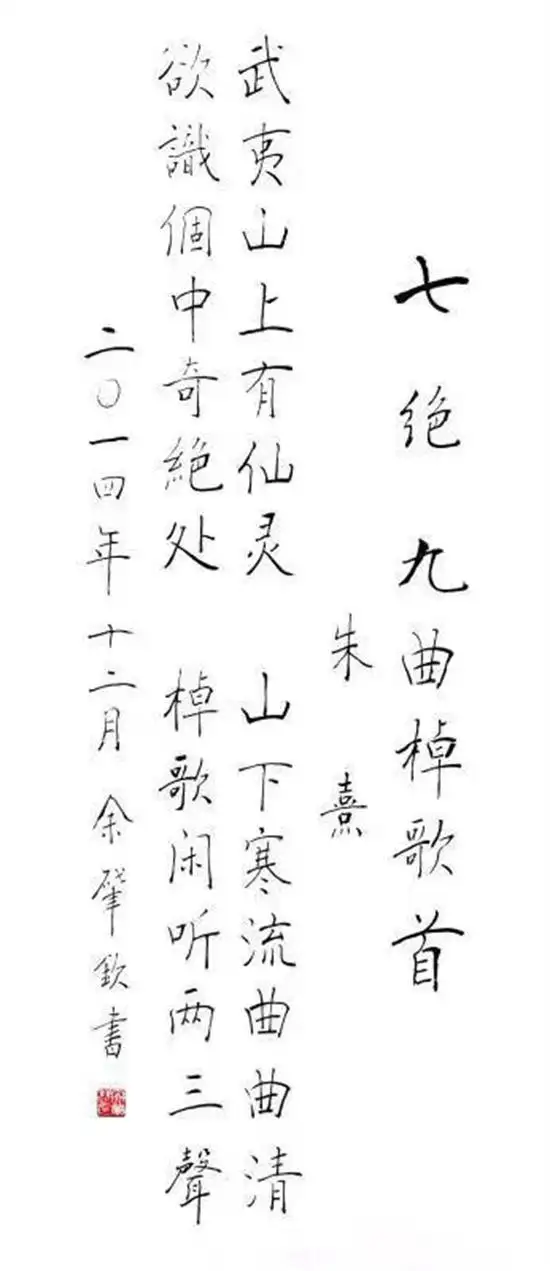 七绝 九曲棹歌首
朱熹
武夷山上有仙灵 山下寒流曲曲清
欲識個中奇絕处 棹歌闲听两三聲
二〇一四年十二月余肇欽書